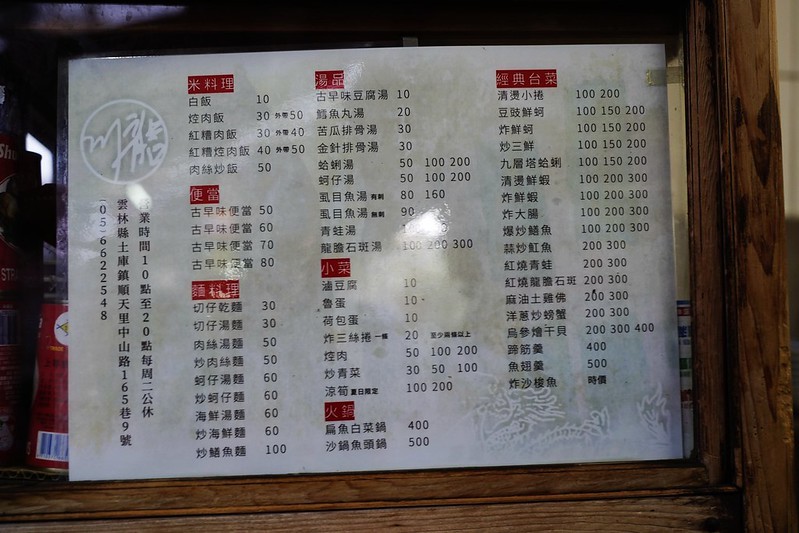 營業時間10點至20點每周二公休
雲林縣土庫鎮順天里中山路165巷9號
(05)6622548
米料理
白飯 10
焢肉飯 30 外帶50
紅糟肉飯 30 外帶40
紅糟焢肉飯 40 外帶50
肉絲炒飯 50
便當
古早味便當 50
古早味便當 60
古早味便當 70
古早味便當 80
麵料理
切仔乾麵 30
切仔湯麵 30
肉絲湯麵 50
炒肉絲麵 50
蚵仔湯麵 60
炒蚵仔麵 60
海鮮湯麵 60
炒海鮮麵 60
炒鱔魚麵 100
湯品
古早味豆腐湯 10
鱈魚丸湯 20
苦瓜排骨湯 30
金針排骨湯 30
蛤蜊湯 50 100 200
蚵仔湯 50 100 200
虱目魚湯 有刺 80 160
虱目魚湯 無刺 90
青蛙湯
龍膽石斑湯 100 200 300
小菜
滷豆腐 10
魯蛋 10
荷包蛋 10
炸三絲捲 一條 20 至少兩條以上
焢肉 50 100 200
炒青菜 30 50 100
涼筍 夏日限定 100 200
火鍋
扁魚白菜鍋 400
沙鍋魚頭鍋 500
經典台菜
清燙小捲 100 200
豆豉鮮蚵 100 150 200
炸鮮蚵 100 150 200
炒三鮮 100 150 200
九層塔蛤蜊 100 150 200
清燙鮮蝦 100 200 300
炸鮮蝦 100 200 300
炸大腸 100 200 300
爆炒鱔魚 100 200 300
蒜炒魟魚 200 300
紅燒青蛙 200 300
紅燒龍膽石斑 200 300
麻油土雞佛 200 300
洋蔥炒螃蟹 200 300
烏參燴干貝 200 300 400
蹄筋羹 400
魚翅羹 500
炸沙梭魚 時價